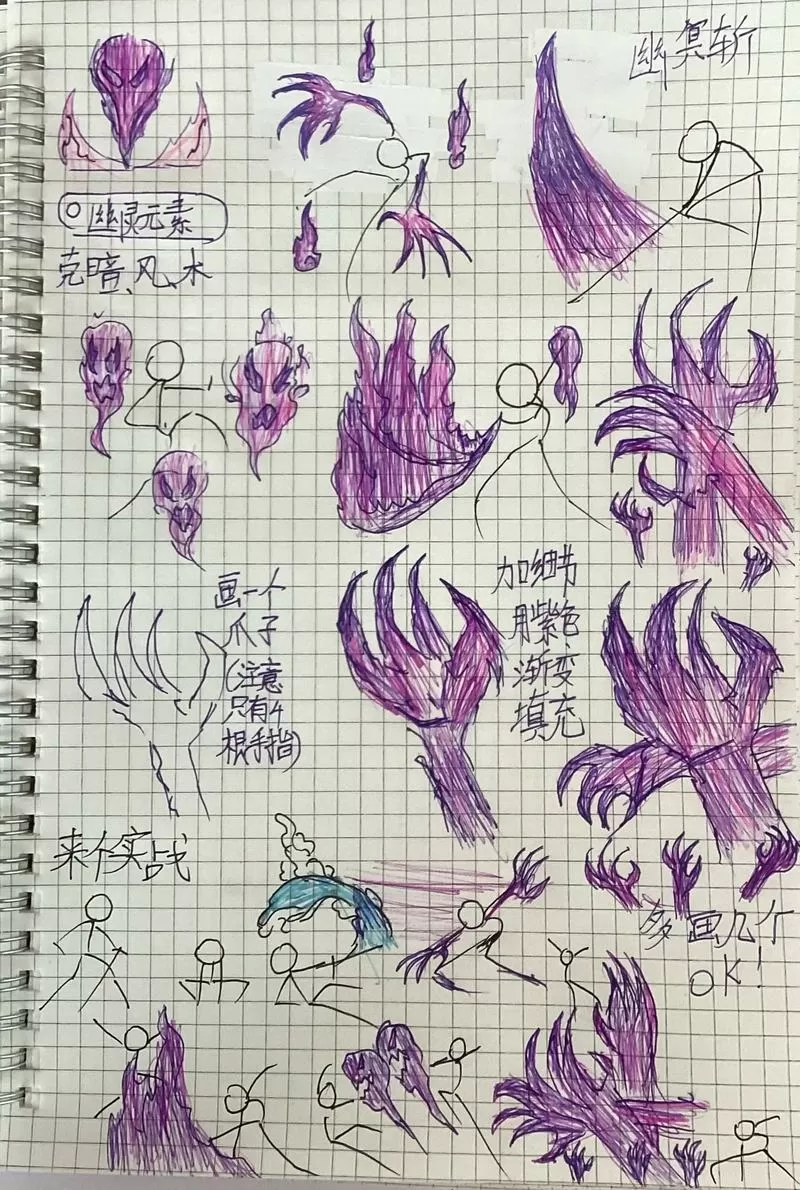 幽冥斩
幽灵元素
克暗、风、木
画一个
爪子
(注意
只有4
根手指)
加细节
用紫色
渐变
填充
来个实战
多画几个
OK!